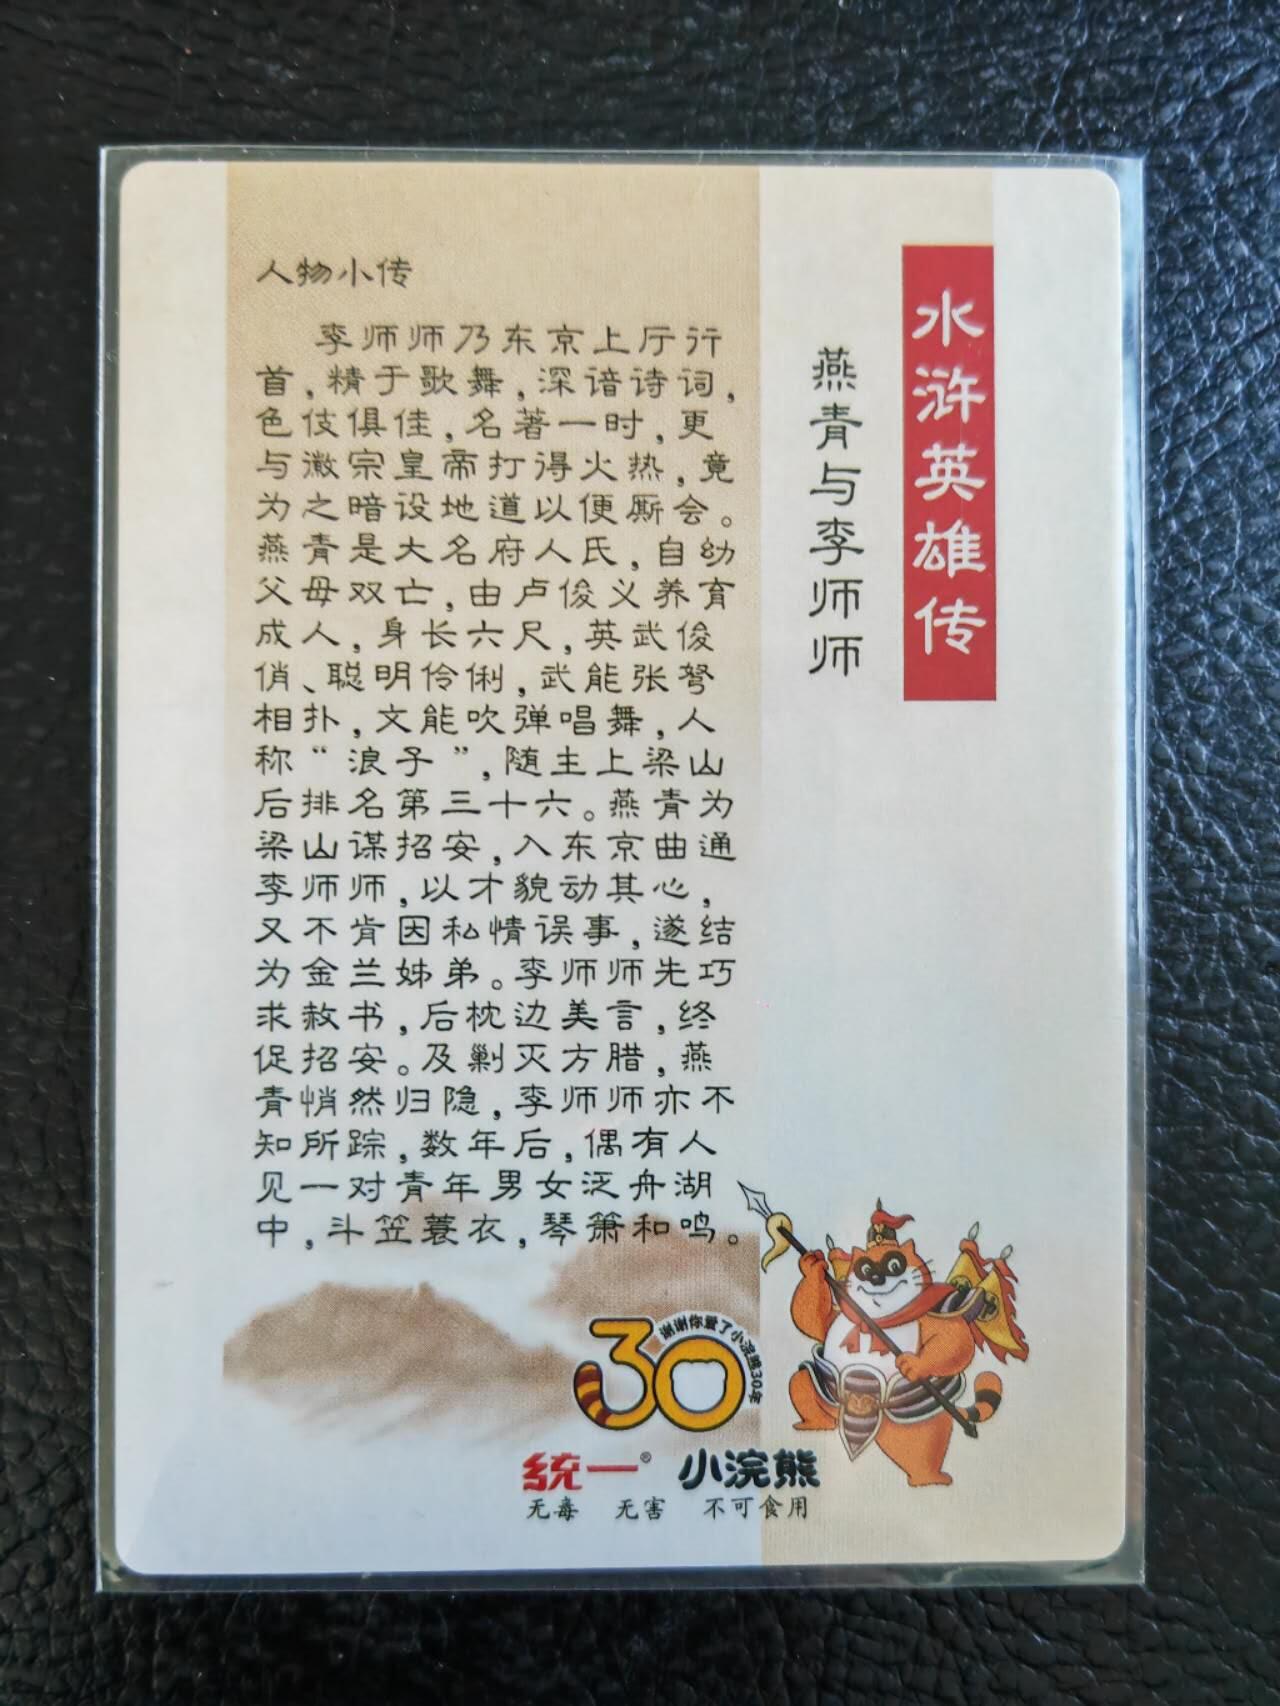 水浒英雄传
燕青与李师师
人物小传
李师师乃东京上厅行
首,精于歌舞,深谙诗词,
色伎俱佳,名著一时,更
与徽宗皇帝打得火热,竟
为之暗设地道以便厮会。
燕青是大名府人氏,自幼
父母双亡,由卢俊义养育
成人,身长六尺,英武俊
俏、聪明伶俐,武能张弩
相扑,文能吹弹唱舞,人
称“浪子”,随主上梁山
后排名第三十六。燕青为
梁山谋招安,入东京曲通
李师师,以才貌动其心,
又不肯因私情误事,遂结
为金兰姊弟。李师师先巧
求赦书,后枕边美言,终
促招安。及剿灭方腊,燕
青悄然归隐,李师师亦不
知所踪,数年后,偶有人
见一对青年男女泛舟湖
中,斗笠蓑衣,琴箫和鸣。
30
谢谢你爱了小浣熊30年
统一® 小浣熊
无毒 无害 不可食用